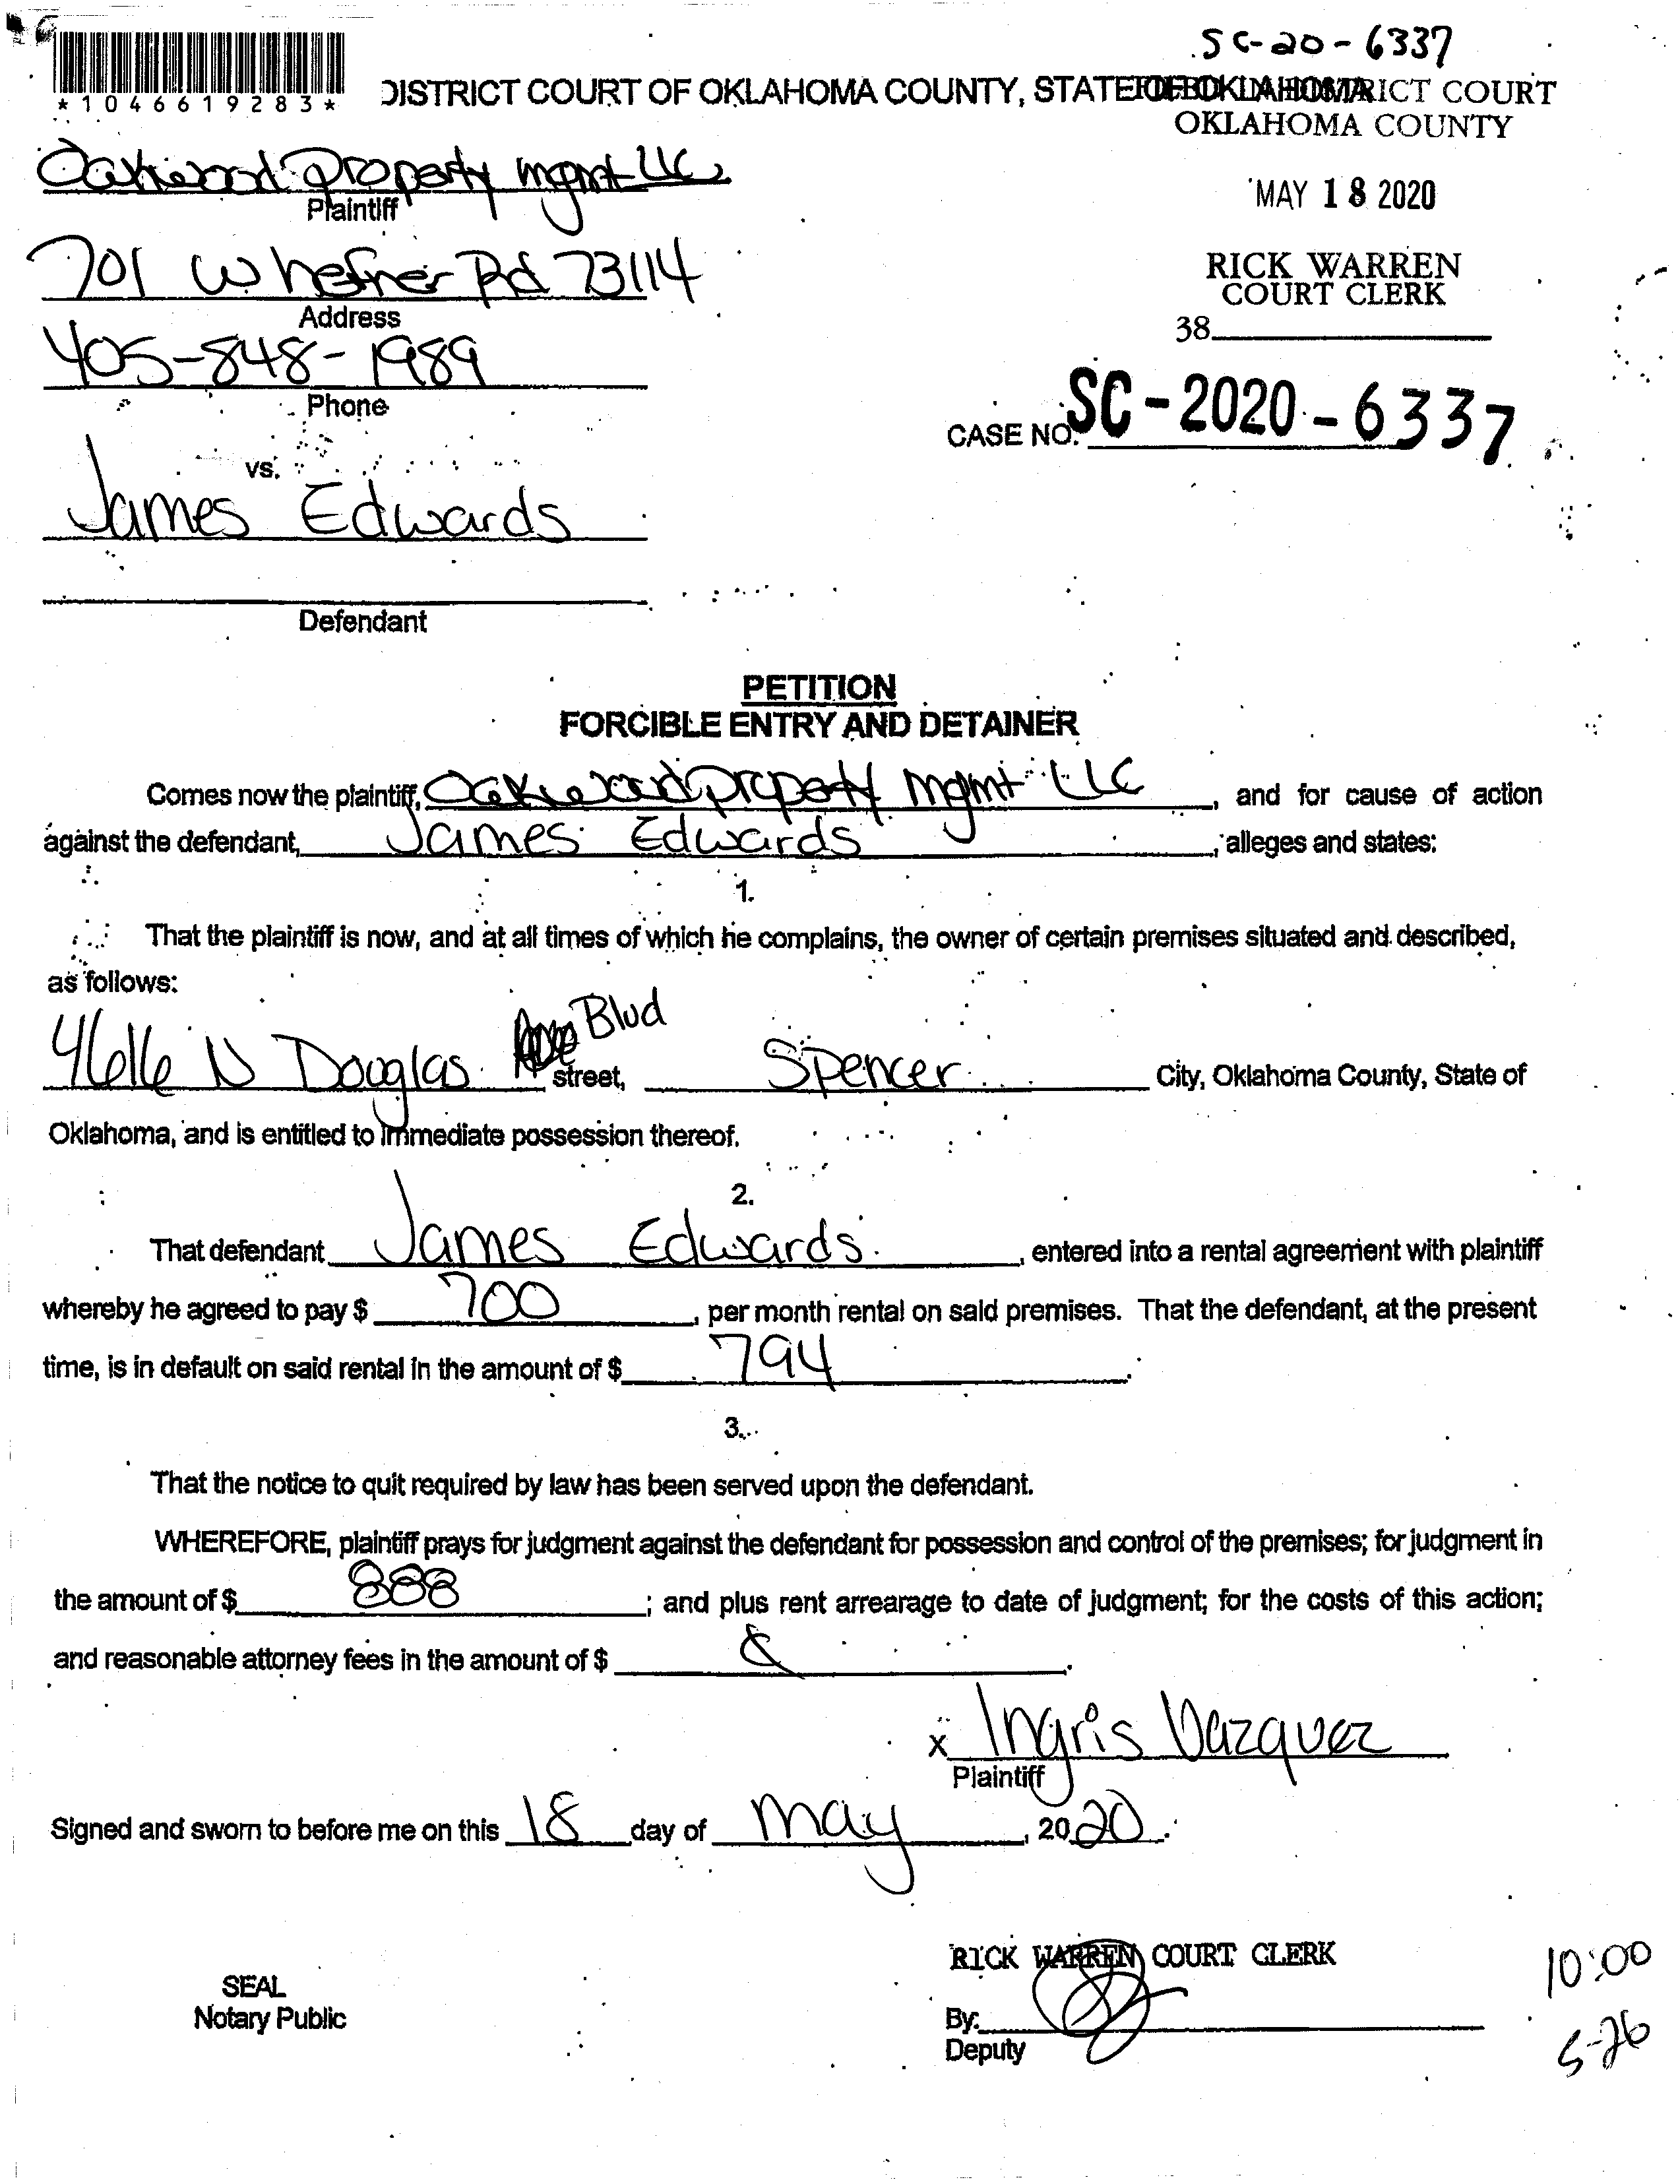 SC-20-6337
*1046619283*
DISTRICT COURT OF OKLAHOMA COUNTY, STATE OF OKLAHOMA
FILED IN DISTRICT COURT
OKLAHOMA COUNTY
Oakwood Property mgmt LLC
Plaintiff
MAY 18 2020
701 W hefner Rd 73114
Address
RICK WARREN
COURT CLERK
38
405-848-1989
Phone
CASE NO. SC-2020-6337
vs.
James Edwards
Defendant
PETITION
FORCIBLE ENTRY AND DETAINER
Comes now the plaintiff, Oakwood property mgmt LLC, and for cause of action
against the defendant, James Edwards, alleges and states:
1.
That the plaintiff is now, and at all times of which he complains, the owner of certain premises situated and described,
as follows:
4616 N Douglas Blvd street, Spencer City, Oklahoma County, State of
Oklahoma, and is entitled to immediate possession thereof.
2.
That defendant James Edwards, entered into a rental agreement with plaintiff
whereby he agreed to pay $ 700, per month rental on said premises. That the defendant, at the present
time, is in default on said rental in the amount of $ 794.
3.
That the notice to quit required by law has been served upon the defendant.
WHEREFORE, plaintiff prays for judgment against the defendant for possession and control of the premises; for judgment in
the amount of $ 888; and plus rent arrearage to date of judgment; for the costs of this action;
and reasonable attorney fees in the amount of $
x Ingris Vazquez
Plaintiff
Signed and sworn to before me on this 18 day of may, 2020.
RICK WARREN COURT CLERK
10:00
SEAL
Notary Public
By:
Deputy
5-26